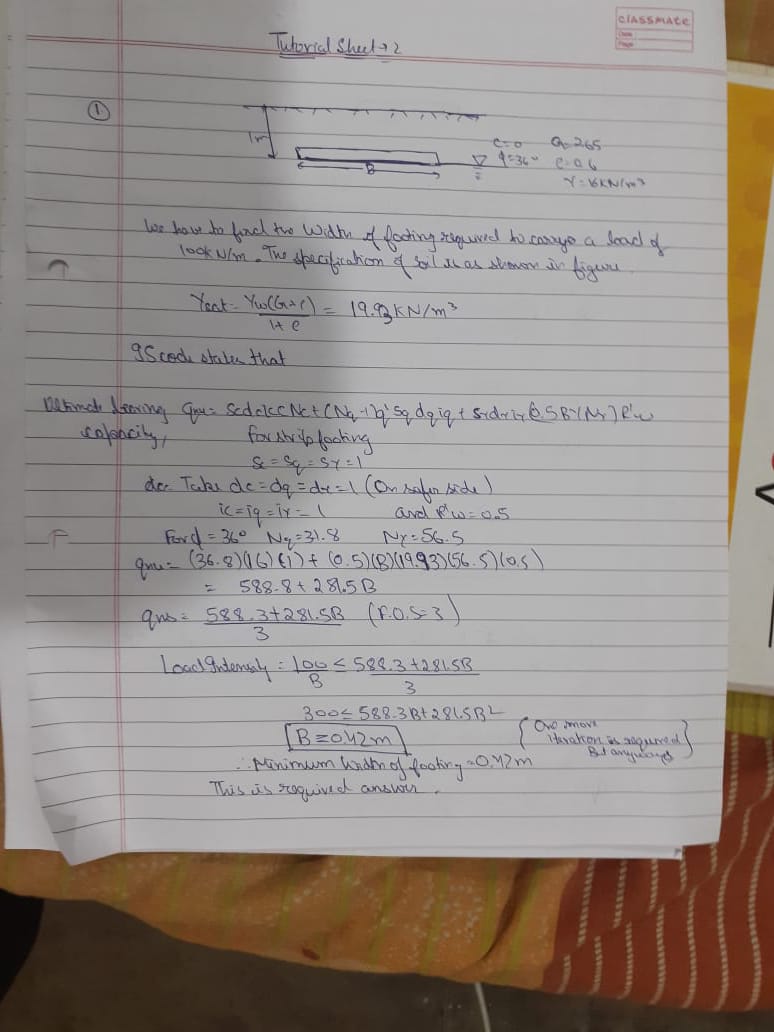 classmate
Date
Page
Tutorial Sheet → 2
①
1m
B
C=0 G=2.65
φ=36° e=0.6
γ=16KN/m³
We have to find the width of footing required to carry a load of
100kN/m. The specification of soil is as shown in figure
γsat = γw(G+e) = 19.93 KN/m³
1+e
IS code states that
Ultimate bearing qnu = Scdcic C Nc + (Nq-1)q' Sq dq iq + Sγdγiγ 0.5Bγ(Nγ) R'w
capacity, for strip footing
Sc = Sq = Sγ = 1
Take dc = dq = dγ = 1 (On safer side)
ic = iq = iγ = 1 and R'w = 0.5
For φ = 36° Nq = 31.8 Nγ = 56.5
qnu = (36.8)(16)(1) + (0.5)(B)(19.93)(56.5)(0.5)
= 588.8 + 281.5B
qns = 588.3+281.5B (F.O.S=3)
3
Load Intensity = 100 ≤ 588.3+281.5B
B 3
300 ≤ 588.3B + 281.5B²
B = 0.42m
{One more
iteration is required
But anyways}
∴ Minimum width of footing = 0.42m
This is required answer.